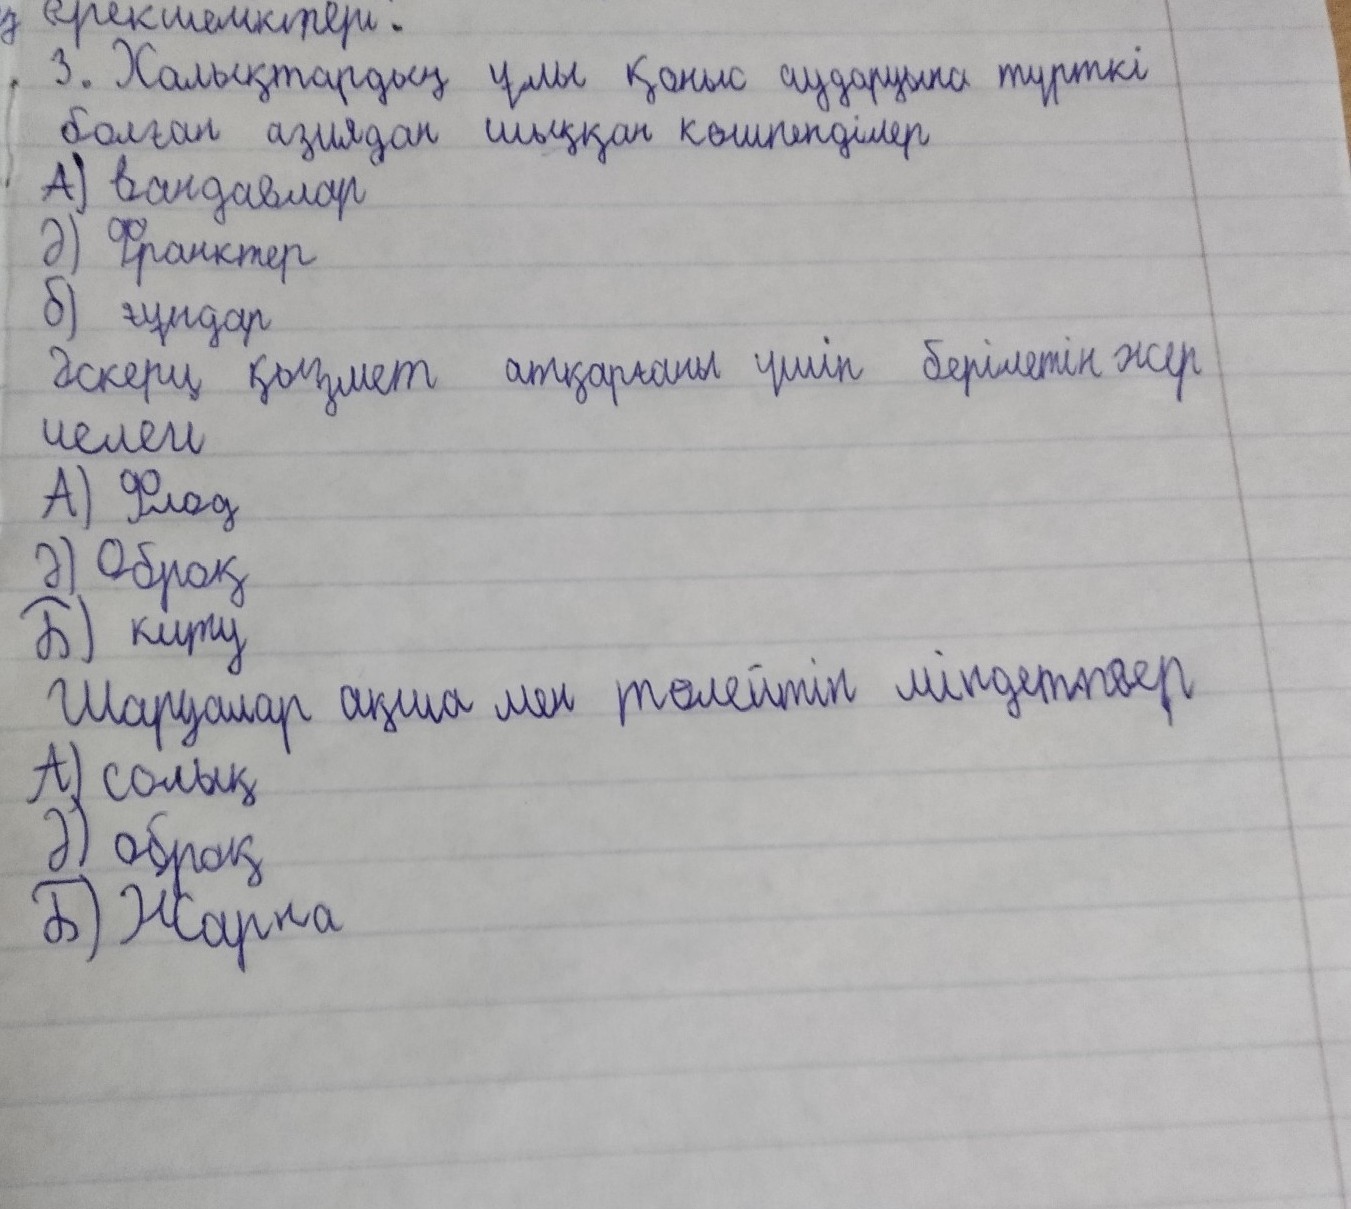 ерекшеліктері.
3. Халықтардың ұлы қоныс аударуына түрткі
болған азиядан шыққан көшпенділер
А) Вандавлар
Ә) Франктер
б) ғұндар
Әскери қызмет атқарғаны үшін берілетін жер
иелегі
А) Флод
Ә) Оброк
Б) киту
Шаруалар ақша мен төлейтін міндеттвер
А) салық
Ә) оброк
Б) Жарна